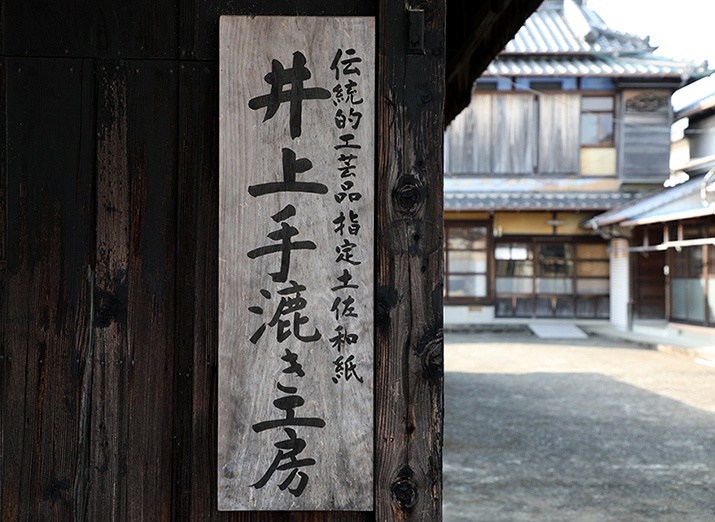 伝統的工芸品指定土佐和紙
井上手漉き工房